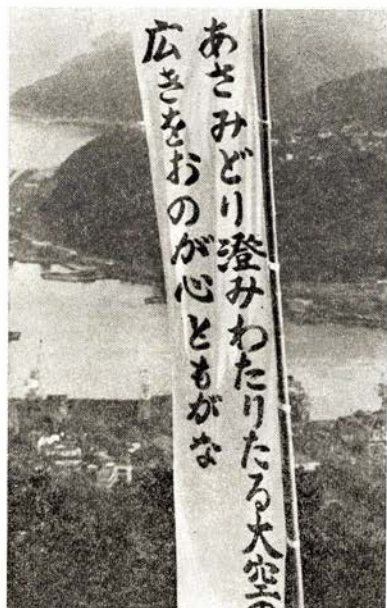 あさみどり澄みわたりたる大空の
広きをおのが心ともがな